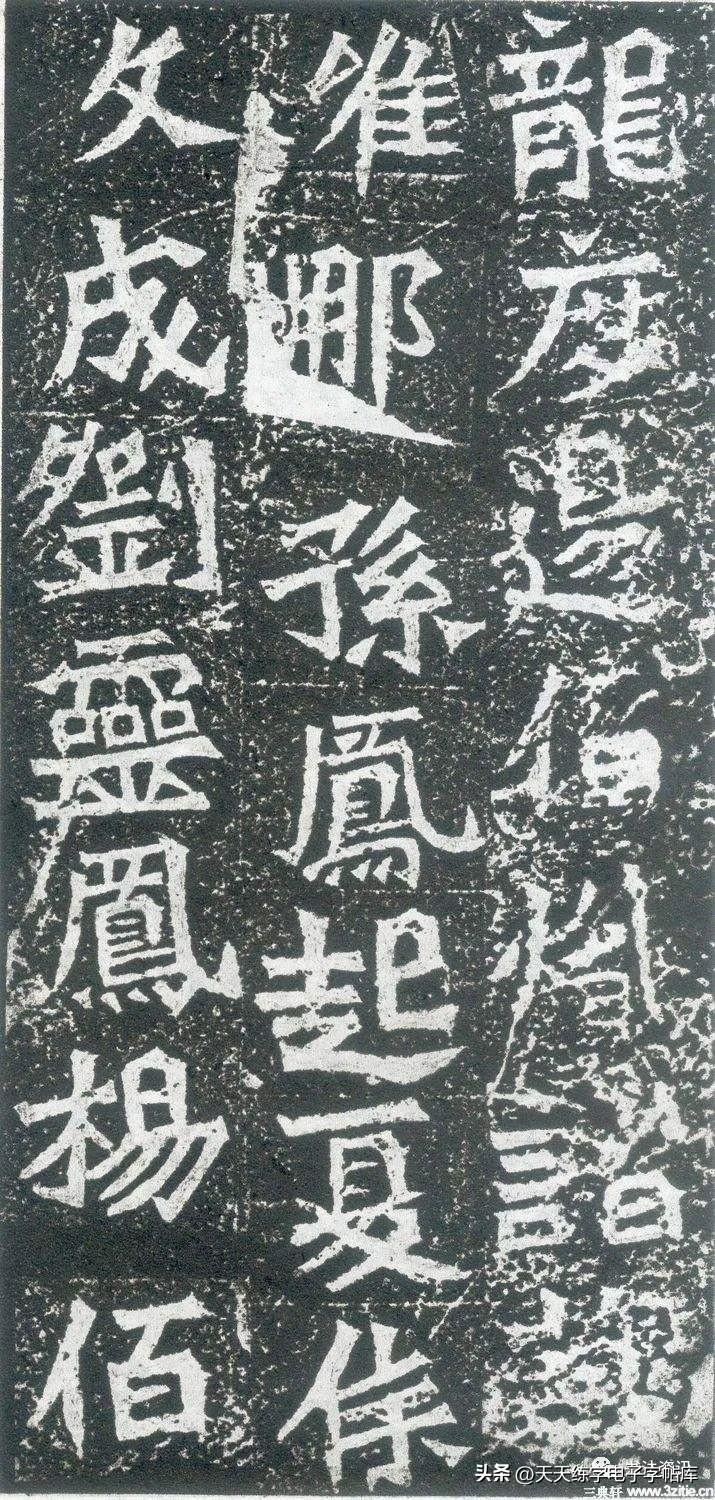 龍度邊伯
唯那孫鳳起夏侯
文成劉靈鳳楊佰
头条 @天天练字电子字帖库
三典轩 www.3zitie.cn